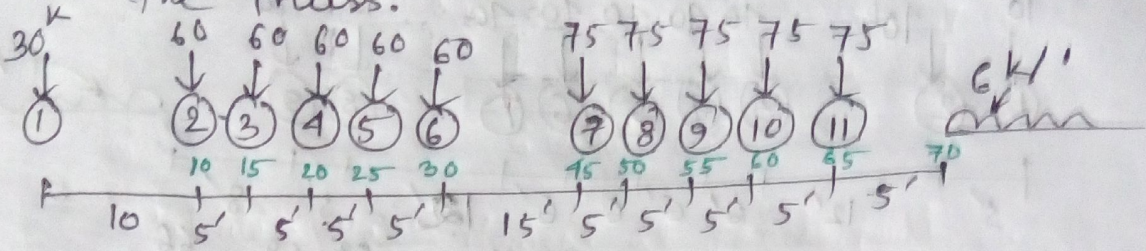 the truss.
30 K 60 60 60 60 60 75 75 75 75 75
6 K/'
1 2 3 4 5 6 7 8 9 10 11
10 15 20 25 30 45 50 55 60 65 70
10 5' 5' 5' 5' 15' 5' 5' 5' 5' 5'